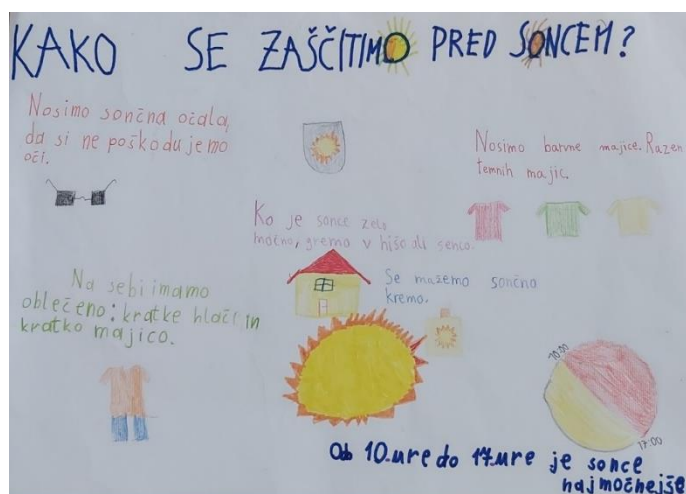 KAKO SE ZAŠČITIMO PRED SONCEM?
Nosimo sončna očala,
da si ne poškodujemo
oči.
Nosimo barvne majice. Razen
temnih majic.
Ko je sonce zelo
močno, gremo v hišo ali senco.
Se mažemo sončno
kremo.
Na sebi imamo
oblečeno: kratke hlače in
kratko majico.
10:00
17:00
Od 10.ure do 17.ure je sonce
najmočnejše